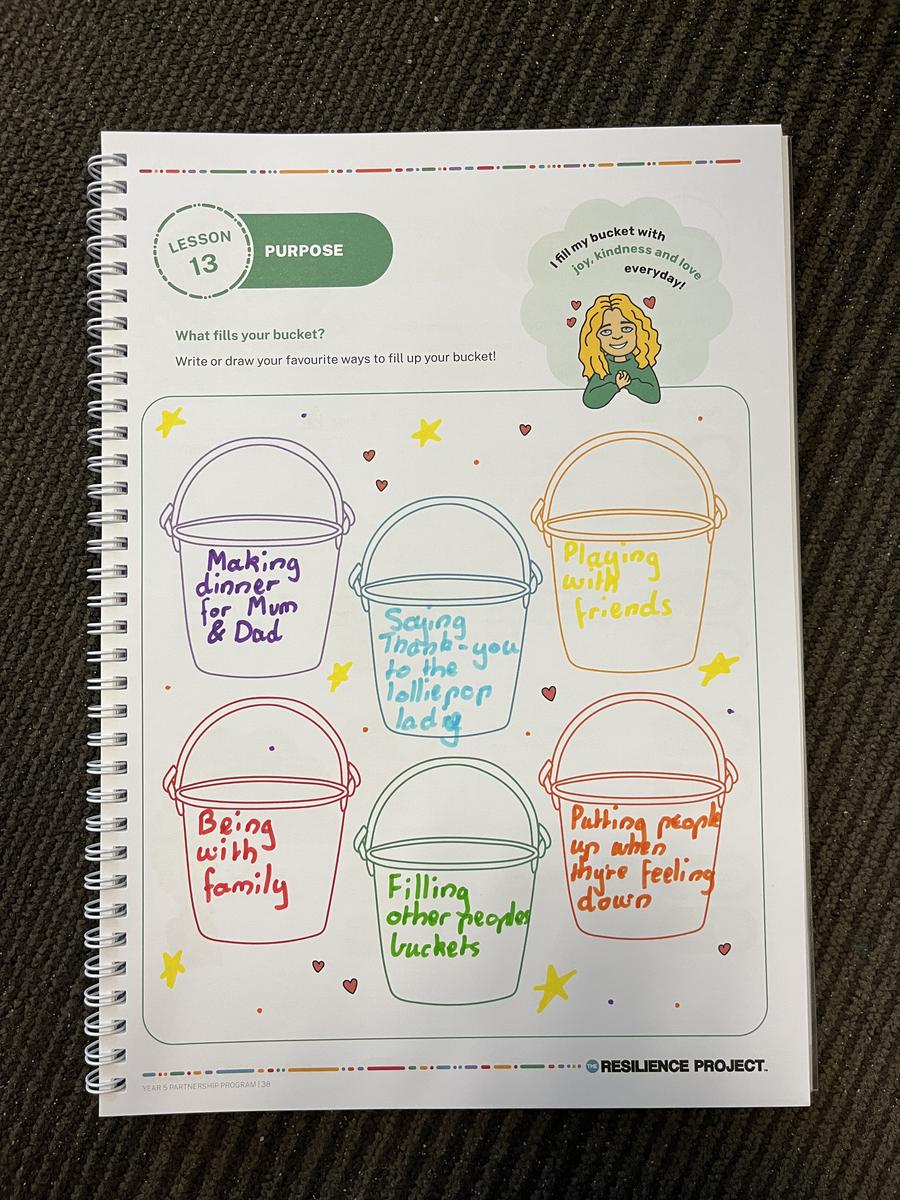 LESSON
13
PURPOSE
I fill my bucket with
joy, kindness and love
everyday!
What fills your bucket?
Write or draw your favourite ways to fill up your bucket!
Making
dinner
for Mum
& Dad
Saying
Thank-you
to the
lolliepop
lady
Playing
with
friends
Being
with
family
Filling
other peoples
buckets
Putting people
up when
thyre feeling
down
YEAR 5 PARTNERSHIP PROGRAM | 38
THE RESILIENCE PROJECT.